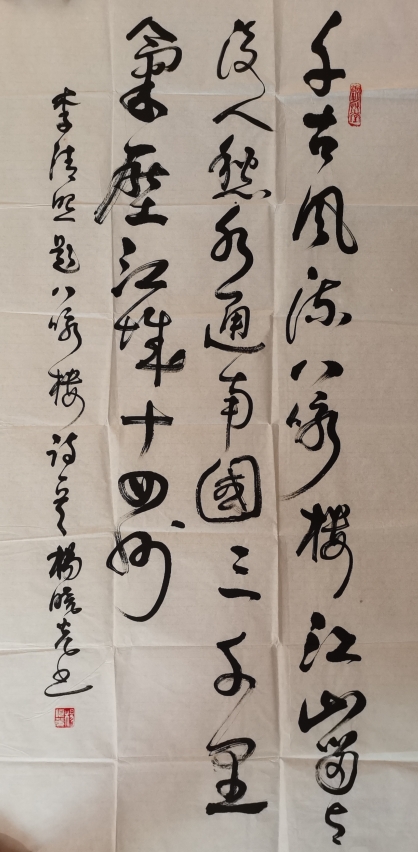 千古风流八咏楼江山留与
後人愁水通南國三千里
氣壓江城十四州
李清照题八咏楼诗一首楊曉书